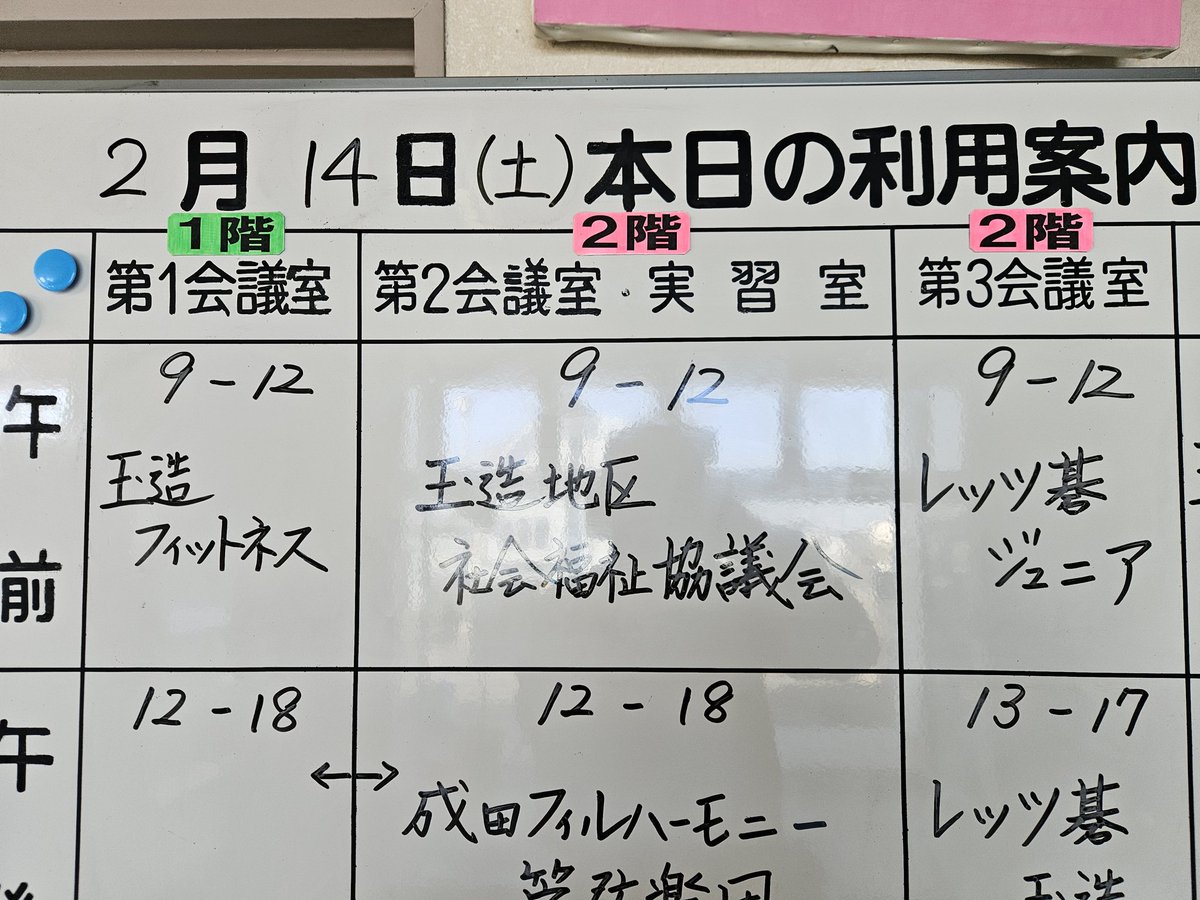 2月14日(土)本日の利用案内
1階
2階
2階
第1会議室
第2会議室・実習室
第3会議室
午前
9-12
玉造
フィットネス
9-12
玉造地区
社会福祉協議会
9-12
レッツ碁
ジュニア
午
12-18
↔
12-18
成田フィルハーモニー
管弦楽団
13-17
レッツ碁
玉造